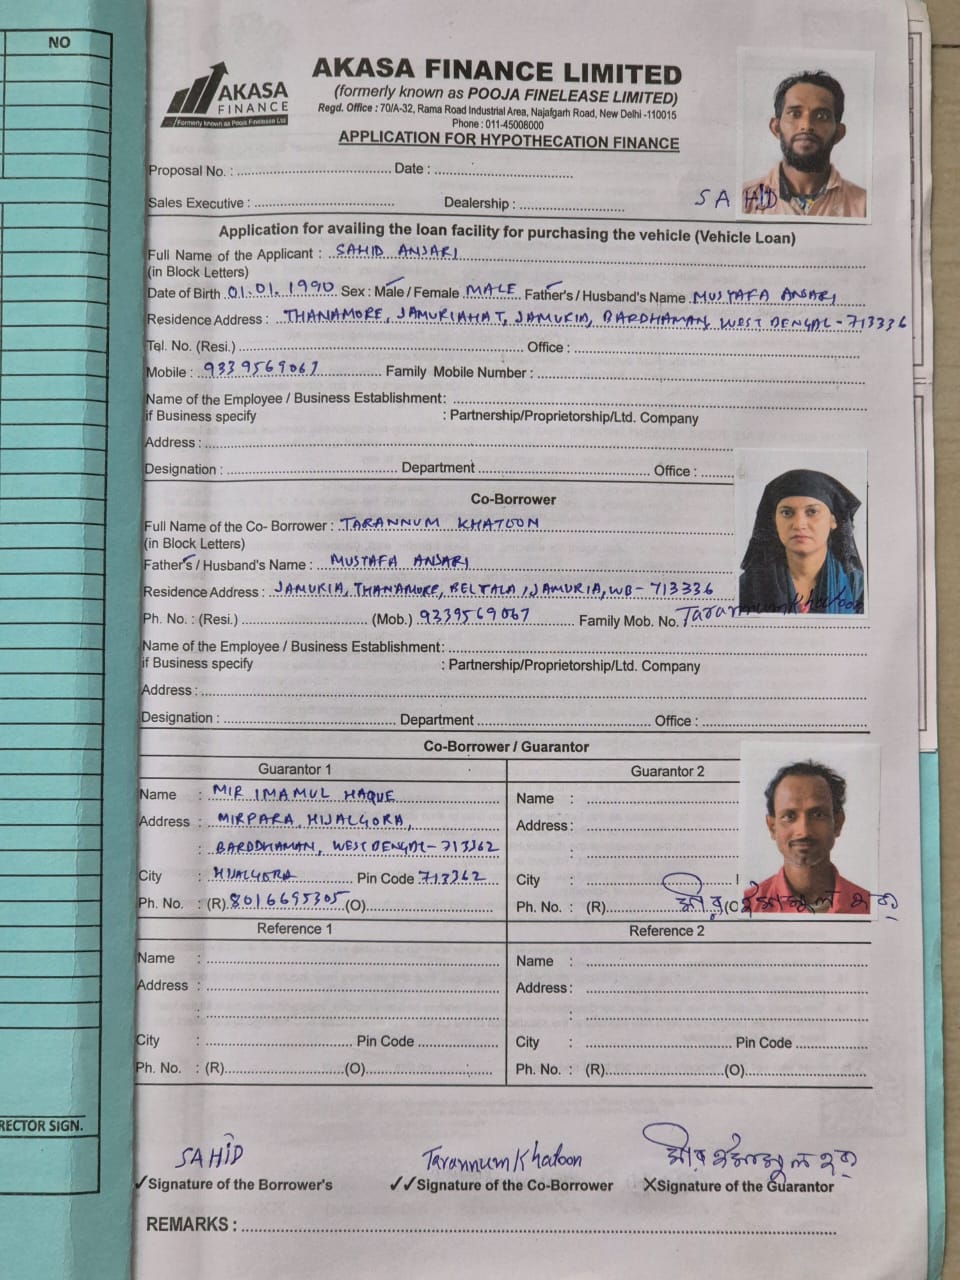 NO
AKASA FINANCE LIMITED
AKASA
FINANCE
Formerly known as Pooja Finelease Ltd
(formerly known as POOJA FINELEASE LIMITED)
Regd. Office : 70/A-32, Rama Road Industrial Area, Najafgarh Road, New Delhi -110015
Phone : 011-45008000
APPLICATION FOR HYPOTHECATION FINANCE
Proposal No. : Date :
SAHID
Sales Executive : Dealership :
Application for availing the loan facility for purchasing the vehicle (Vehicle Loan)
Full Name of the Applicant : SAHID ANSARI
(in Block Letters)
Date of Birth 01.01.1990 Sex : Male / Female MALE Father's / Husband's Name MUSTAFA ANSARI
Residence Address : THANAMORE, JAMURIAHAT, JAMURIA, BARDHAMAN, WEST BENGAL - 713336
Tel. No. (Resi.) Office :
Mobile : 9339569067 Family Mobile Number :
Name of the Employee / Business Establishment:
if Business specify : Partnership/Proprietorship/Ltd. Company
Address :
Designation : Department Office :
Co-Borrower
Full Name of the Co- Borrower : TARANNUM KHATOON
(in Block Letters)
Father's / Husband's Name : MUSTAFA ANSARI
Residence Address : JAMURIA, THANAMORE, BELTALA, JAMURIA, WB - 713336
Ph. No. : (Resi.) (Mob.) 9339569067 Family Mob. No. Tarannum Khatoon
Name of the Employee / Business Establishment:
if Business specify : Partnership/Proprietorship/Ltd. Company
Address :
Designation : Department Office :
Co-Borrower / Guarantor
Guarantor 1 Guarantor 2
Name : MIR IMAMUL HAQUE Name :
Address : MIRPARA, HIJALGORA, Address :
: BARDDHAMAN, WEST BENGAL - 713362 :
City : HIJALGORA Pin Code 713362 City :
Ph. No. : (R) 8016695305 (O) Ph. No. : (R) (O) মীর ইমামুল হক
Reference 1 Reference 2
Name : Name :
Address : Address :
: :
City : Pin Code City : Pin Code
Ph. No. : (R) (O) Ph. No. : (R) (O)
RECTOR SIGN.
SAHID Tarannum Khatoon মীর ইমামুল হক
✓Signature of the Borrower's ✓✓Signature of the Co-Borrower XSignature of the Guarantor
REMARKS :